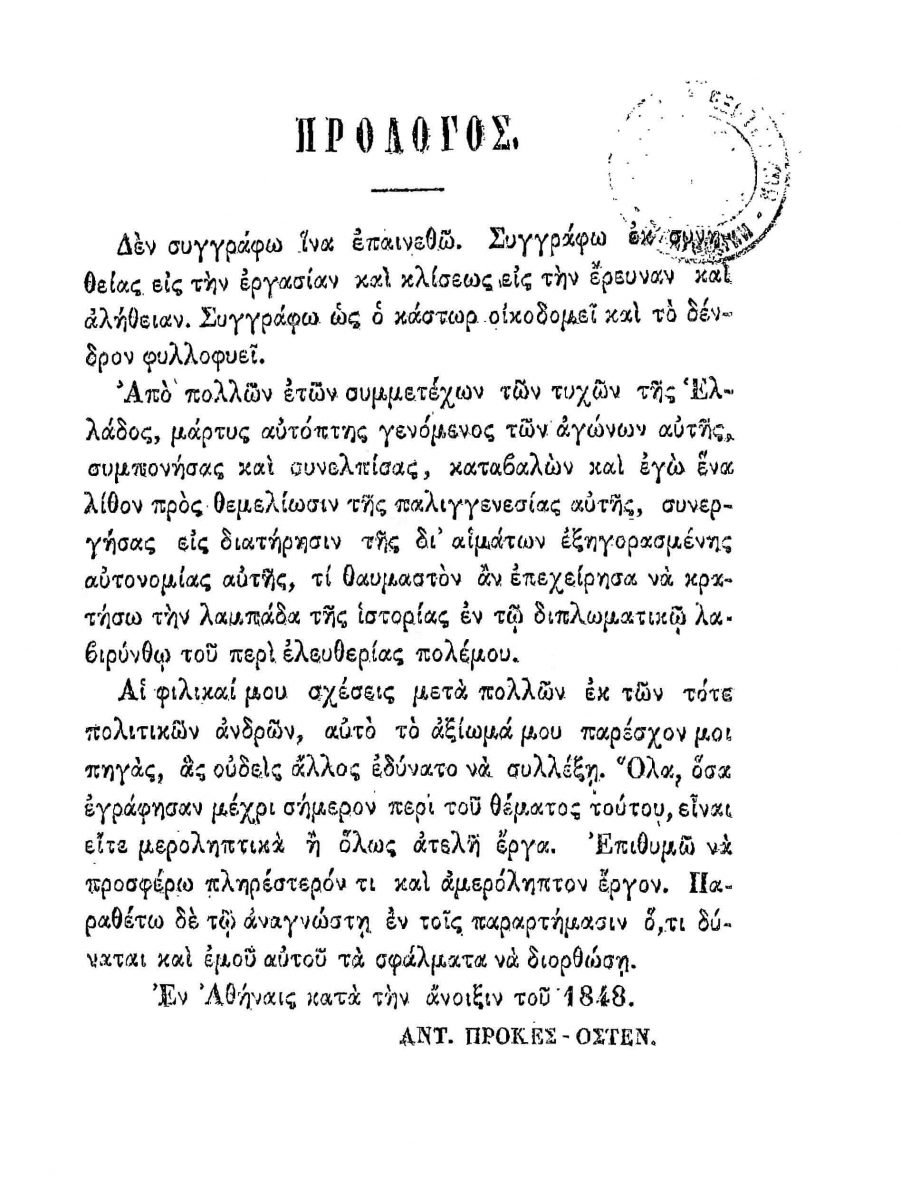 ΠΡΟΛΟΓΟΣ.
Δὲν συγγράφω ἵνα ἐπαινεθῶ. Συγγράφω ἐκ συνη-
θείας εἰς τὴν ἐργασίαν καὶ κλίσεως εἰς τὴν ἔρευναν καὶ
ἀλήθειαν. Συγγράφω ὡς ὁ κάστωρ οἰκοδομεῖ καὶ τὸ δέν-
δρον φυλλοφυεῖ.
Ἀπὸ πολλῶν ἐτῶν συμμετέχων τῶν τυχῶν τῆς Ἑλ-
λάδος, μάρτυς αὐτόπτης γενόμενος τῶν ἀγώνων αὐτῆς,
συμπονήσας καὶ συνελπίσας, καταβαλὼν καὶ ἐγὼ ἕνα
λίθον πρὸς θεμελίωσιν τῆς παλιγγενεσίας αὐτῆς, συνερ-
γήσας εἰς διατήρησιν τῆς δι' αἱμάτων ἐξηγορασμένης
αὐτονομίας αὐτῆς, τί θαυμαστὸν ἂν ἐπεχείρησα νὰ κρα-
τήσω τὴν λαμπάδα τῆς ἱστορίας ἐν τῷ διπλωματικῷ λα-
βιρύνθῳ τοῦ περὶ ἐλευθερίας πολέμου.
Αἱ φιλικαί μου σχέσεις μετὰ πολλῶν ἐκ τῶν τότε
πολιτικῶν ἀνδρῶν, αὐτὸ τὸ ἀξίωμά μου παρέσχον μοι
πηγὰς, ἃς οὐδεὶς ἄλλος ἐδύνατο νὰ συλλέξῃ. Ὅλα, ὅσα
ἐγράφησαν μέχρι σήμερον περὶ τοῦ θέματος τούτου, εἶναι
εἴτε μεροληπτικὰ ἢ ὅλως ἀτελῆ ἔργα. Ἐπιθυμῶ νὰ
προσφέρω πληρέστερόν τι καὶ ἀμερόληπτον ἔργον. Πα-
ραθέτω δὲ τῷ ἀναγνώστῃ ἐν τοῖς παραρτήμασιν ὅ,τι δύ-
ναται καὶ ἐμοῦ αὐτοῦ τὰ σφάλματα νὰ διορθώσῃ.
Ἐν Ἀθήναις κατὰ τὴν ἄνοιξιν τοῦ 1848.
ΑΝΤ. ΠΡΟΚΕΣ - ΟΣΤΕΝ.